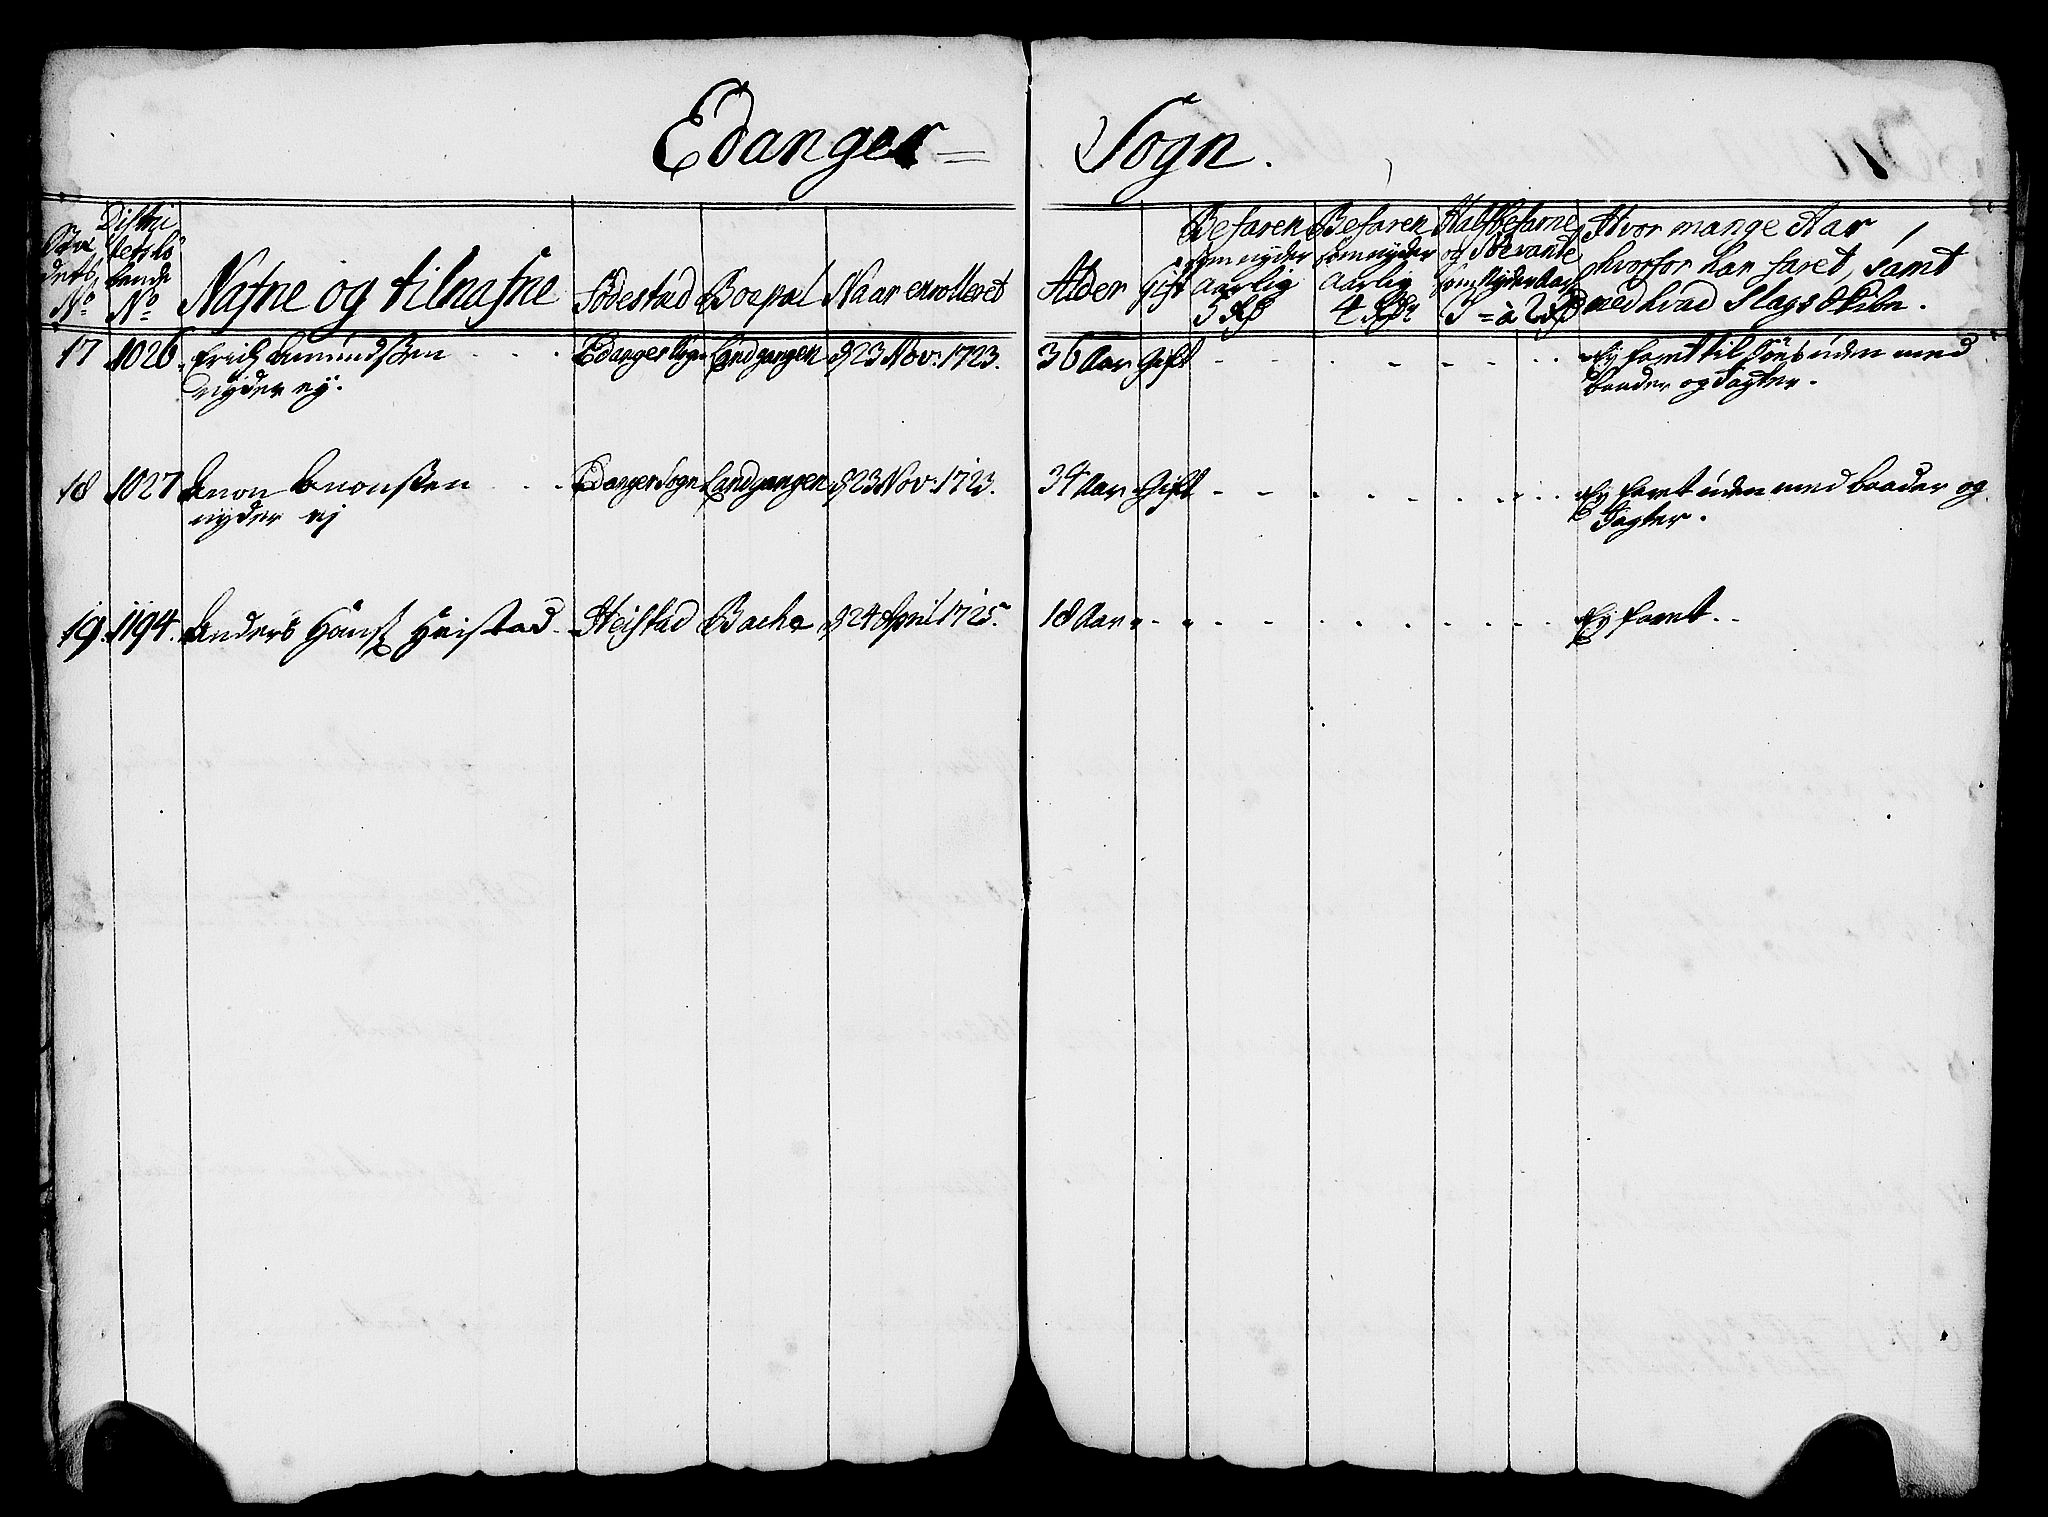 Edanger = Sogn.
Districtets løbende No
Nafne og tilnafne
Fødestad
Boepæl
Naar enrolleret
Alder
gift
Befaren som nyder aarlig 5 Rd
Befaren som nyder aarlig 4 Rdr
Halfbefarne og Søevante som Nyder Aarl 1 = à 2 Rd
Hvor mange Aar, hvorfor han faret, samt med hvad Slags Skibe.
17 1026. Erich Amundssen Edanger Sogn Landgangen d 23 Nov: 1723. 36 Aar Gift Ey faret til Søes uden med
nyder ey. baader og Jagter.
18 1027 Anon Anonssen Edanger Sogn Landgangen d 23 Nov: 1723. 34 Aar Gift Ey faret uden med baader og
nyder ej Jagter.
19. 1194. Anders Hans Heistad Heistad Bache d 24 April 1725. 18 Aar Ey faret.